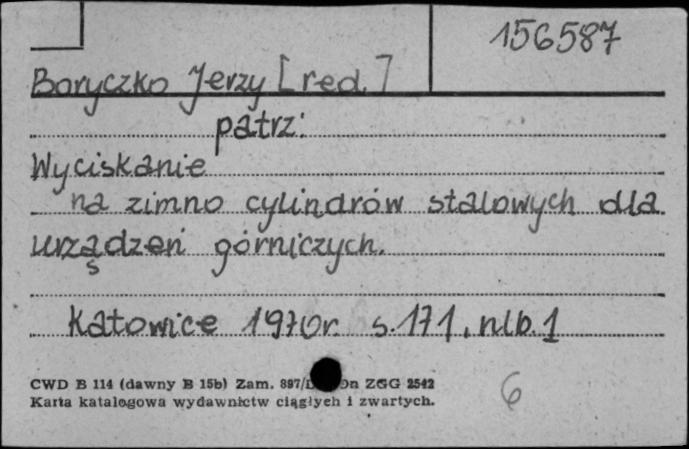 156587
Boryczko Jerzy [red.]
patrz:
Wyciskanie
na zimno cylindrów stalowych dla
urządzeń górniczych.
Katowice 1970r. s.171, nlb.1
CWD B 114 (dawny B 15b) Zam. 897/ ZGG 2542
Karta katalogowa wydawnictw ciągłych i zwartych.
6